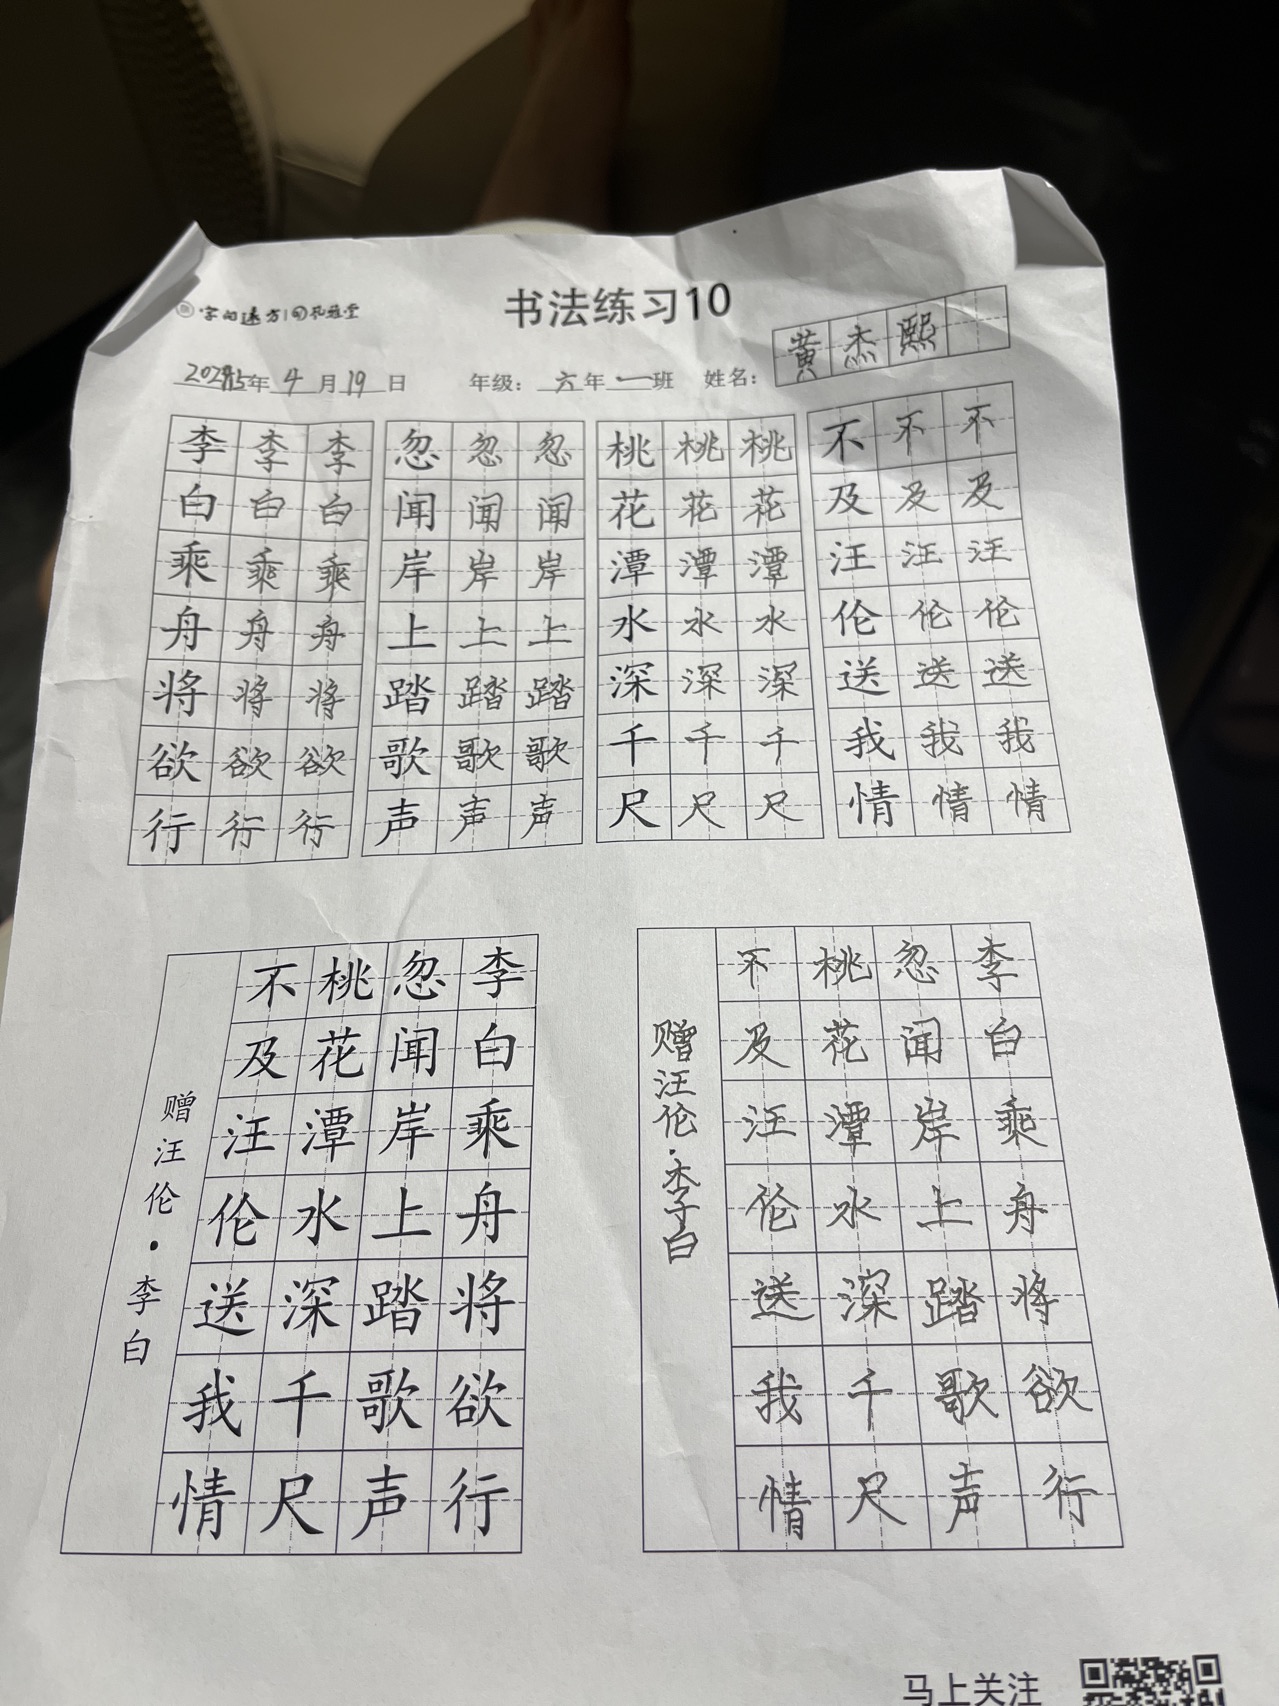 书法练习10
字的远方
黄杰熙
年4月19日 年级：六年一班 姓名：
李李李 忽忽忽 桃桃桃 不不不
白白白 闻闻闻 花花花 及及及
乘乘乘 岸岸岸 潭潭潭 汪汪汪
舟舟舟 上上上 水水水 伦伦伦
将将将 踏踏踏 深深深 送送送
欲欲欲 歌歌歌 千千千 我我我
行行行 声声声 尺尺尺 情情情
李白乘舟将欲行
忽闻岸上踏歌声
桃花潭水深千尺
不及汪伦送我情
赠汪伦·李白
李白乘舟将欲行
忽闻岸上踏歌声
桃花潭水深千尺
不及汪伦送我情
赠汪伦·李白
马上关注